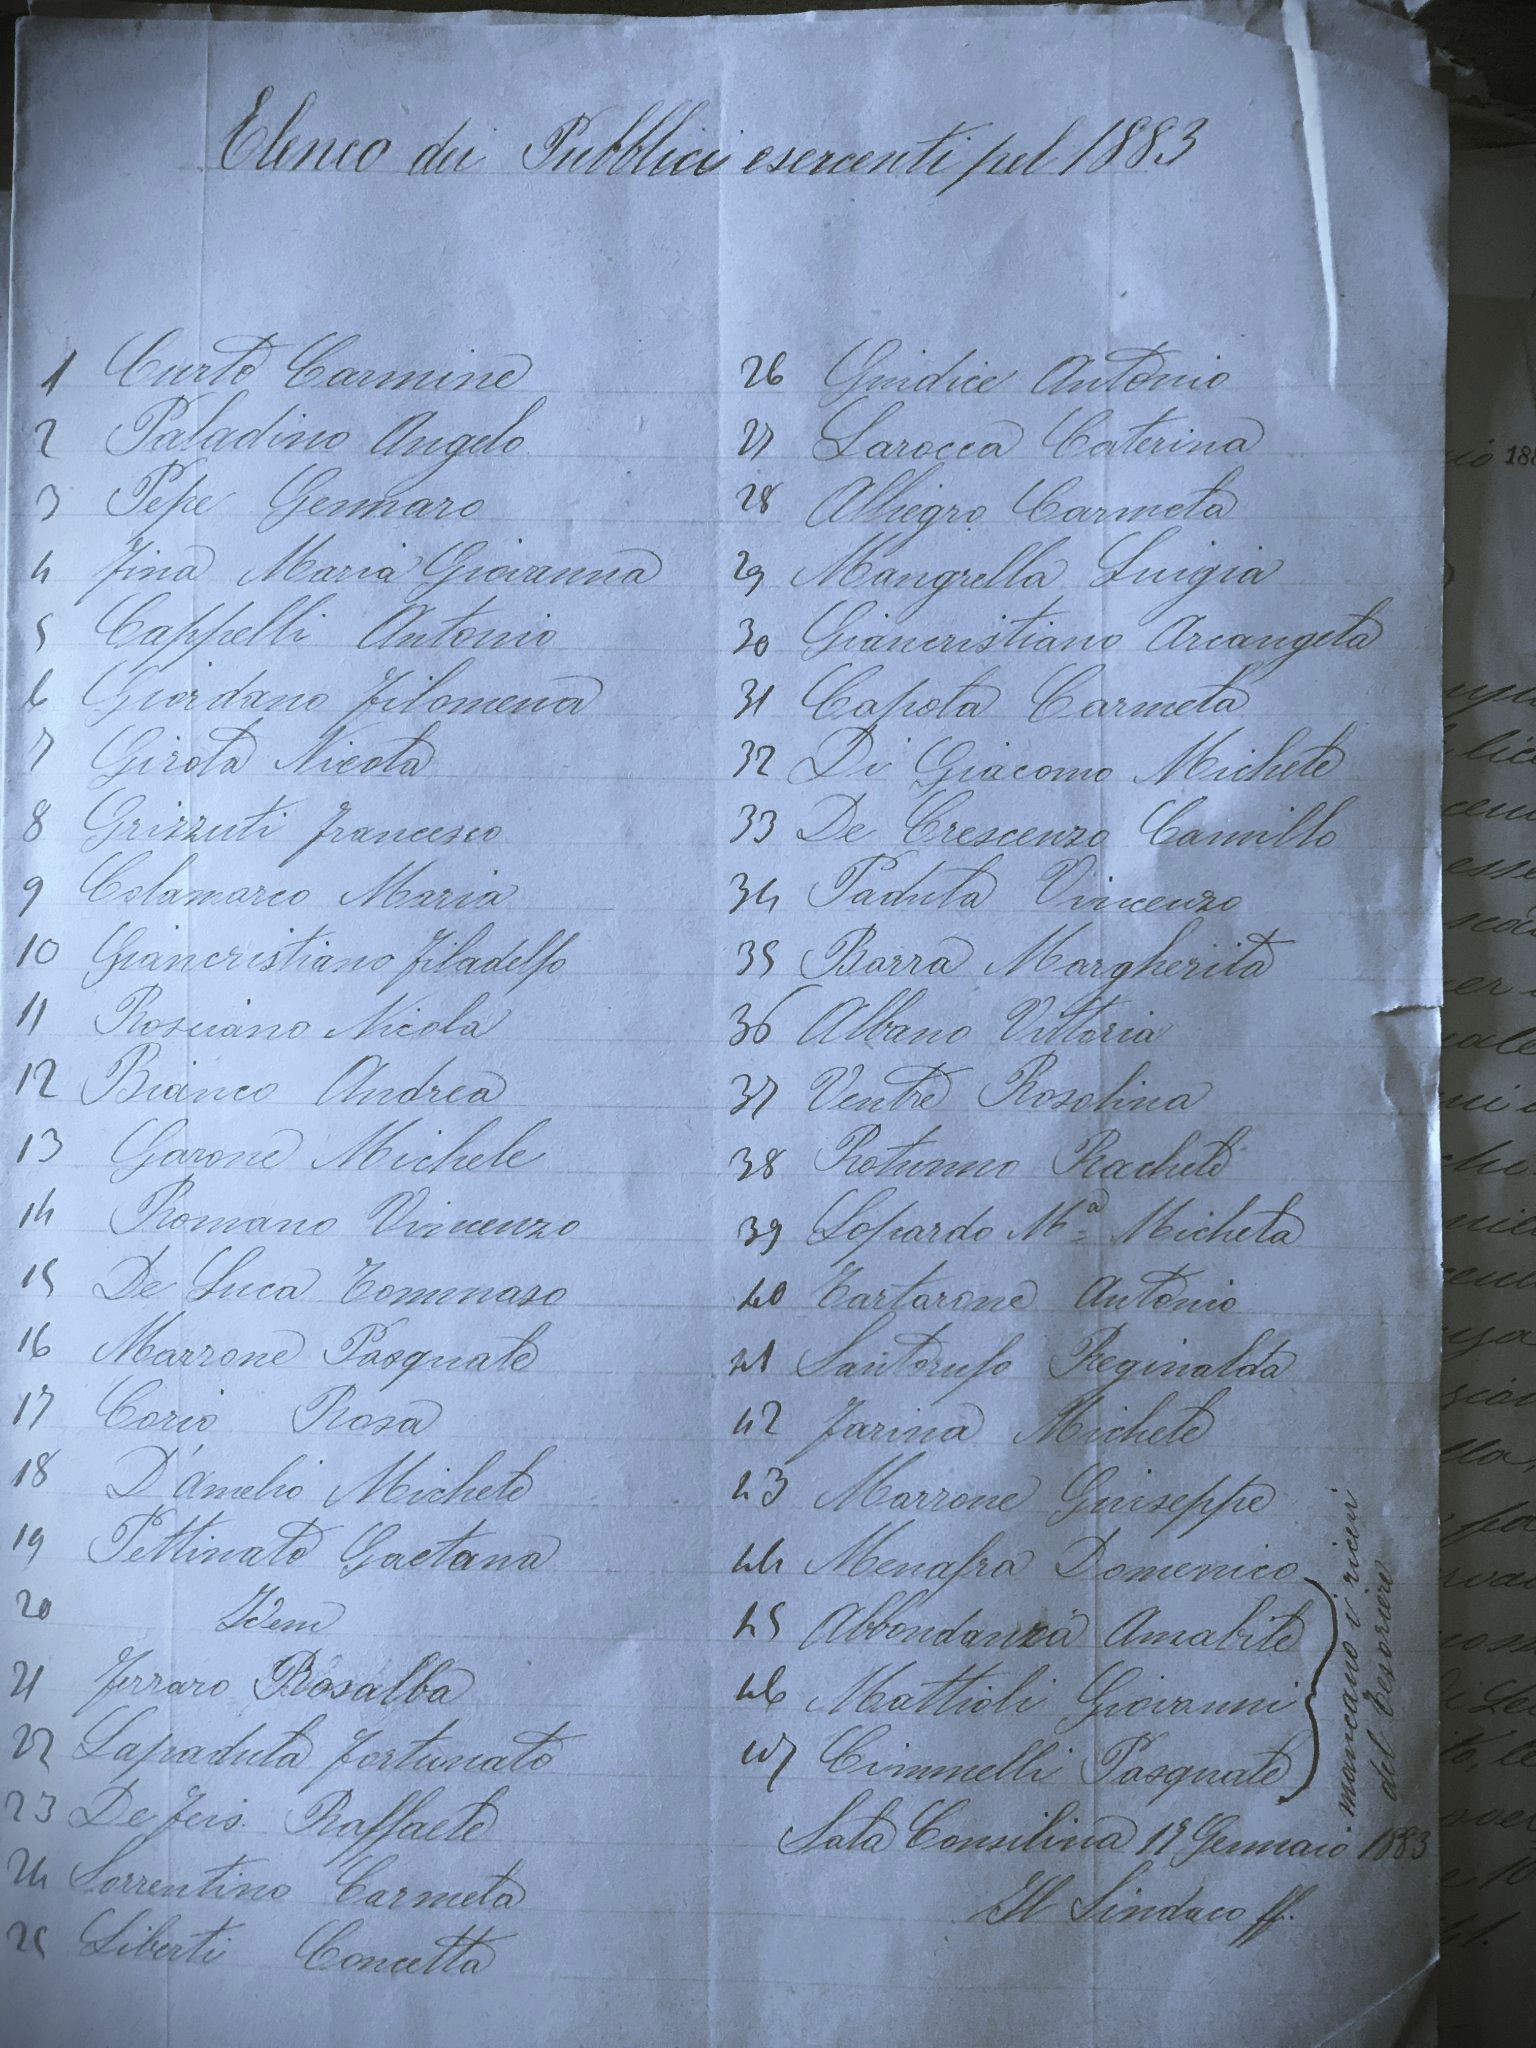 Elenco dei Pubblici esercenti pel 1883
1 Curto Carmine
2 Paladino Angelo
3 Pepe Gennaro
4 Fina Maria Giovanna
5 Cappelli Antonio
6 Giordano Filomena
7 Girola Nicola
8 Grizzuti Francesco
9 Colamarco Maria
10 Giancristiano Filadelfo
11 Rosciano Nicola
12 Bianco Andrea
13 Garone Michele
14 Romano Vincenzo
15 De Luca Tommaso
16 Marrone Pasquale
17 Corio Rosa
18 D'Amelio Michele
19 Pettinato Gaetana
20 Idem
21 Ferraro Rosalba
22 Lapadula Fortunato
23 De Raffaele
24 Sorrentino Carmela
25 Liberti Concetta
26 Giudice Antonio
27 Larocca Caterina
28 Alliegro Carmela
29 Mangrella Luigia
30 Giancristiano Arcangela
31 Capola Carmela
32 Di Giacomo Michele
33 De Crescenzo Camillo
34 Padula Vincenzo
35 Barra Margherita
36 Albano Vittoria
37 Ventre Rosolina
38 Rotunno Rachele
39 Lopardo Mª Michela
40 Tartarone Antonio
41 Santorufo Reginalda
42 Farina Michele
43 Marrone Giuseppe
44 Menafra Domenico
45 Abbondanza Amabile
46 Mattioli Giovanni
47 Cimmelli Pasquale
mancano i ricevi
del Tesoriere
Sala Consilina 19 Gennaio 1883
Il Sindaco ff.